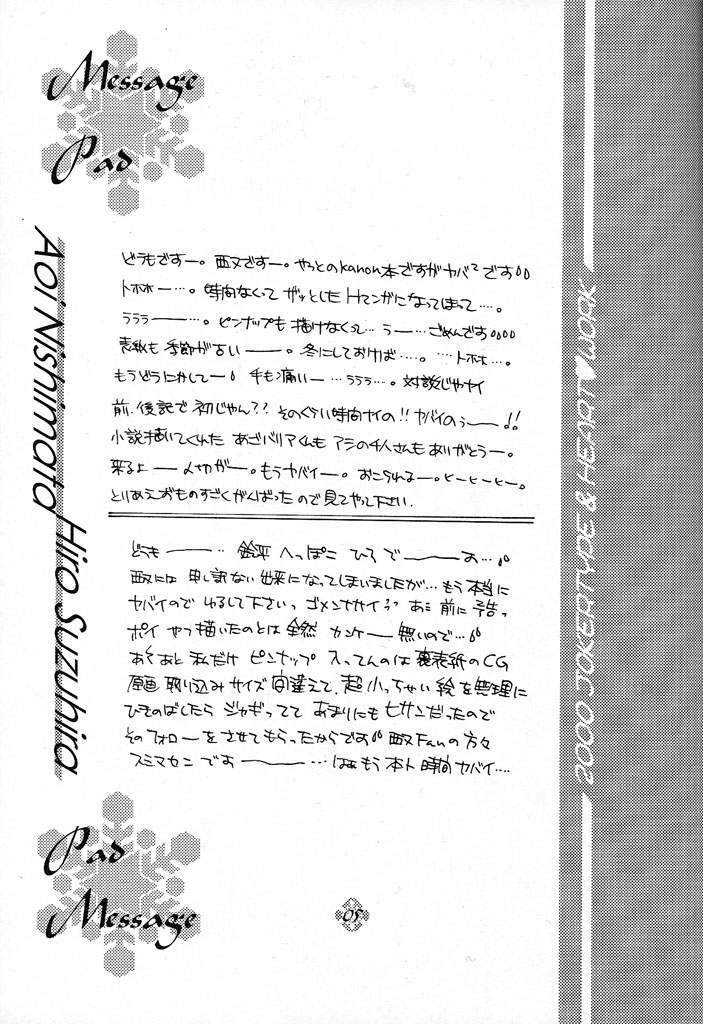 Message
Pad
Aoi Nishimata
どうもですー。西又ですー。やっとのkanon本ですがヤバ²です
トホホー…。時間なくって ザッとしたHマンガになってまって…。
ラララ———…。ピンナップも描けなくって… うー…ごめんです
表紙も季節が古い———。冬にしておけば…。…トホホ…。
もうどうにかしてー 手も痛いー …ラララ…。対談じゃナイ
前、後記で初じゃん?? そのくらい時間ナイの!! ヤバイのぅー!!
小説描いてくれた あざバリアくんも アシの4人さんもありがとうー。
来るよー 〆切がー。もうヤバイー。おこられるー。ヒーヒーヒー。
とりあえずものすごくがんばったので見てやって下さい.
Hiro Suzuhira
どうも———… 鈴平 へっぽこ ひろ で———す…
西又には 申し訳ない出来になってしまいましたが…もう本当に
ヤバイので ゆるして下さいっ ゴメンナサイっっ あと 前に予告っ
ポイ やつ描いたのとは全然 カンケー無いので…
あくあと 私だけ ピンナップ 入ってんのは 裏表紙のCG
原画 取り込みサイズ 間違えて、超 小っちゃい 絵を無理に
ひきのばしたら ジャギってて あまりにも ヒサンだったので
そのフォローをさせてもらったからです 西又Fanの方々
スミマセン です———…はぁ もう 本ト 時間 ヤバイ….
Pad
Message
05
2000 JOKERTYPE & HEART♥WORK